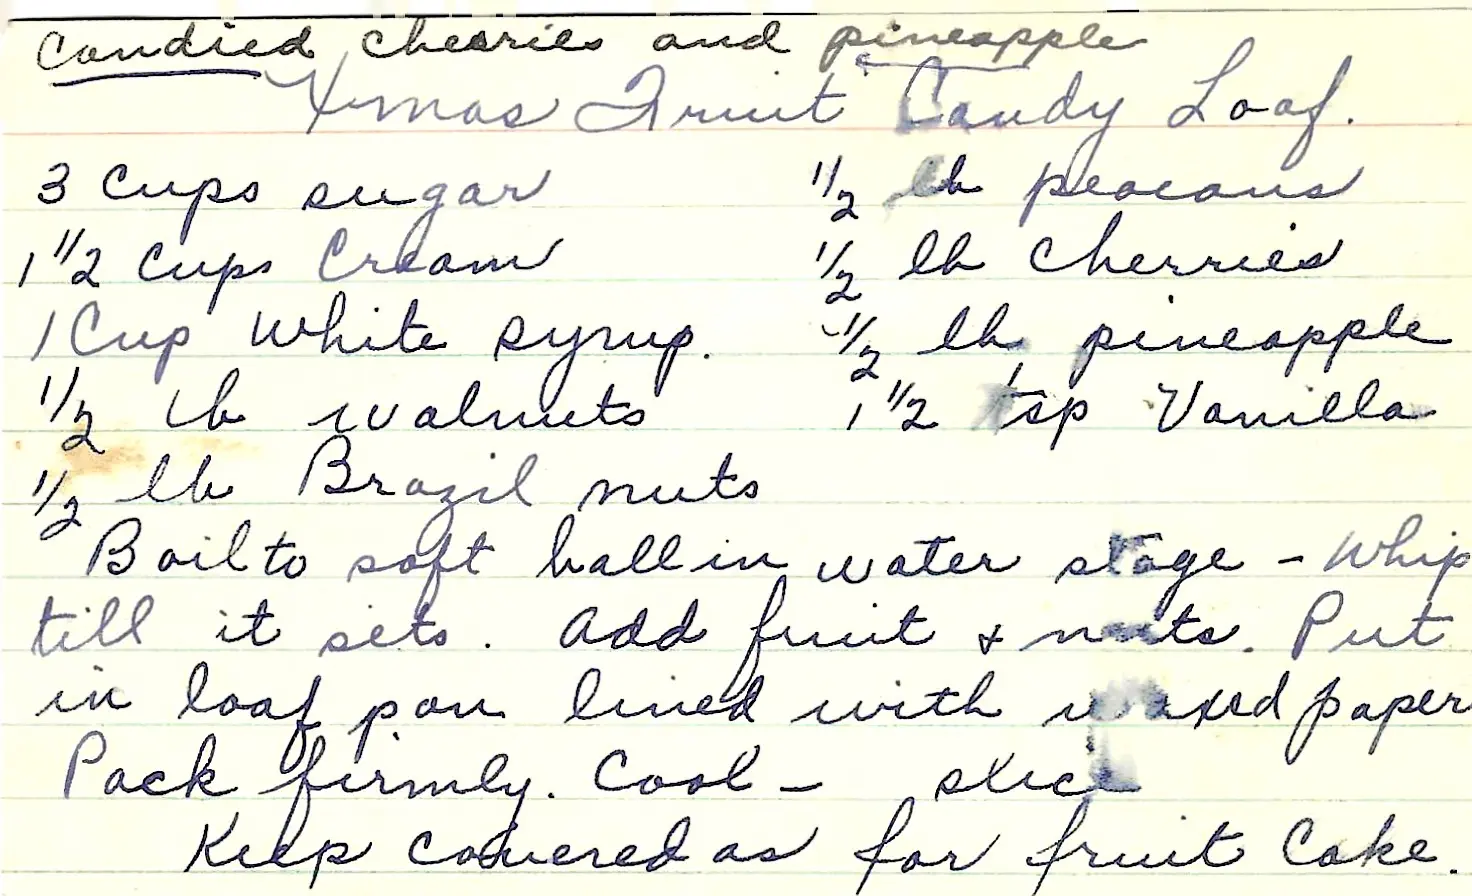 Candied cherries and pineapple
Xmas Fruit Candy Loaf.
3 Cups sugar
1 1/2 Cups Cream
1 Cup White syrup.
1/2 lb walnuts
1/2 lb Brazil nuts
1/2 lb peacans
1/2 lb Cherries
1/2 lb pineapple
1 1/2 tsp Vanilla
Boil to soft ball in water stage - Whip
till it sets. Add fruit & nuts. Put
in loaf pan lined with waxed paper
Pack firmly. Cool - slice
Keep covered as for fruit Cake.